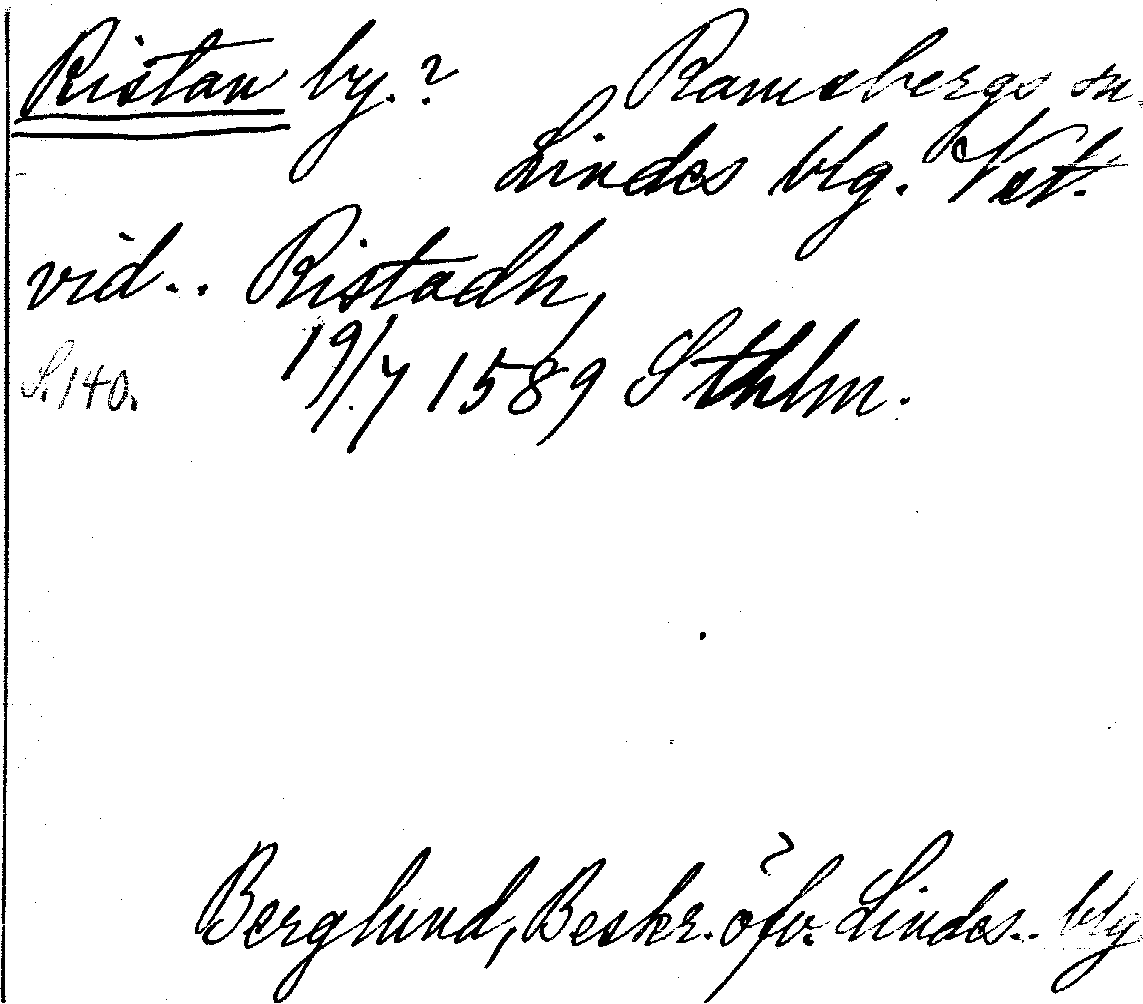 Ristan by.? Ramsbergs sn.
Lindes blg. Vst.
vid.. Ristadh,
S. 140. 19/7 1589 Sthlm.
Berglund, Beskr. öfv. Lindes.. blg